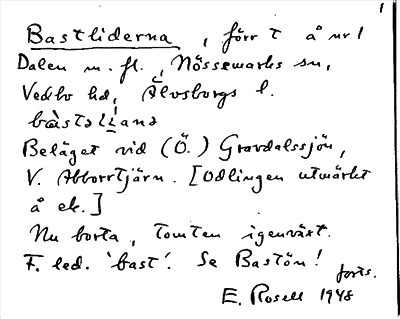 1
Bastliderna, förr t å nr 1
Dalen m. fl., Nössemarks sn,
Vedbo hd, Älvsborgs l.
bàstəlíanə
Beläget vid (Ö.) Gravdalssjön,
V. Abborrtjärn. [Odlingen utmärkt
å ek.]
Nu borta, tomten igenväxt.
F. led. 'bast'. Se Bastön!
forts.
E. Rosell 1948